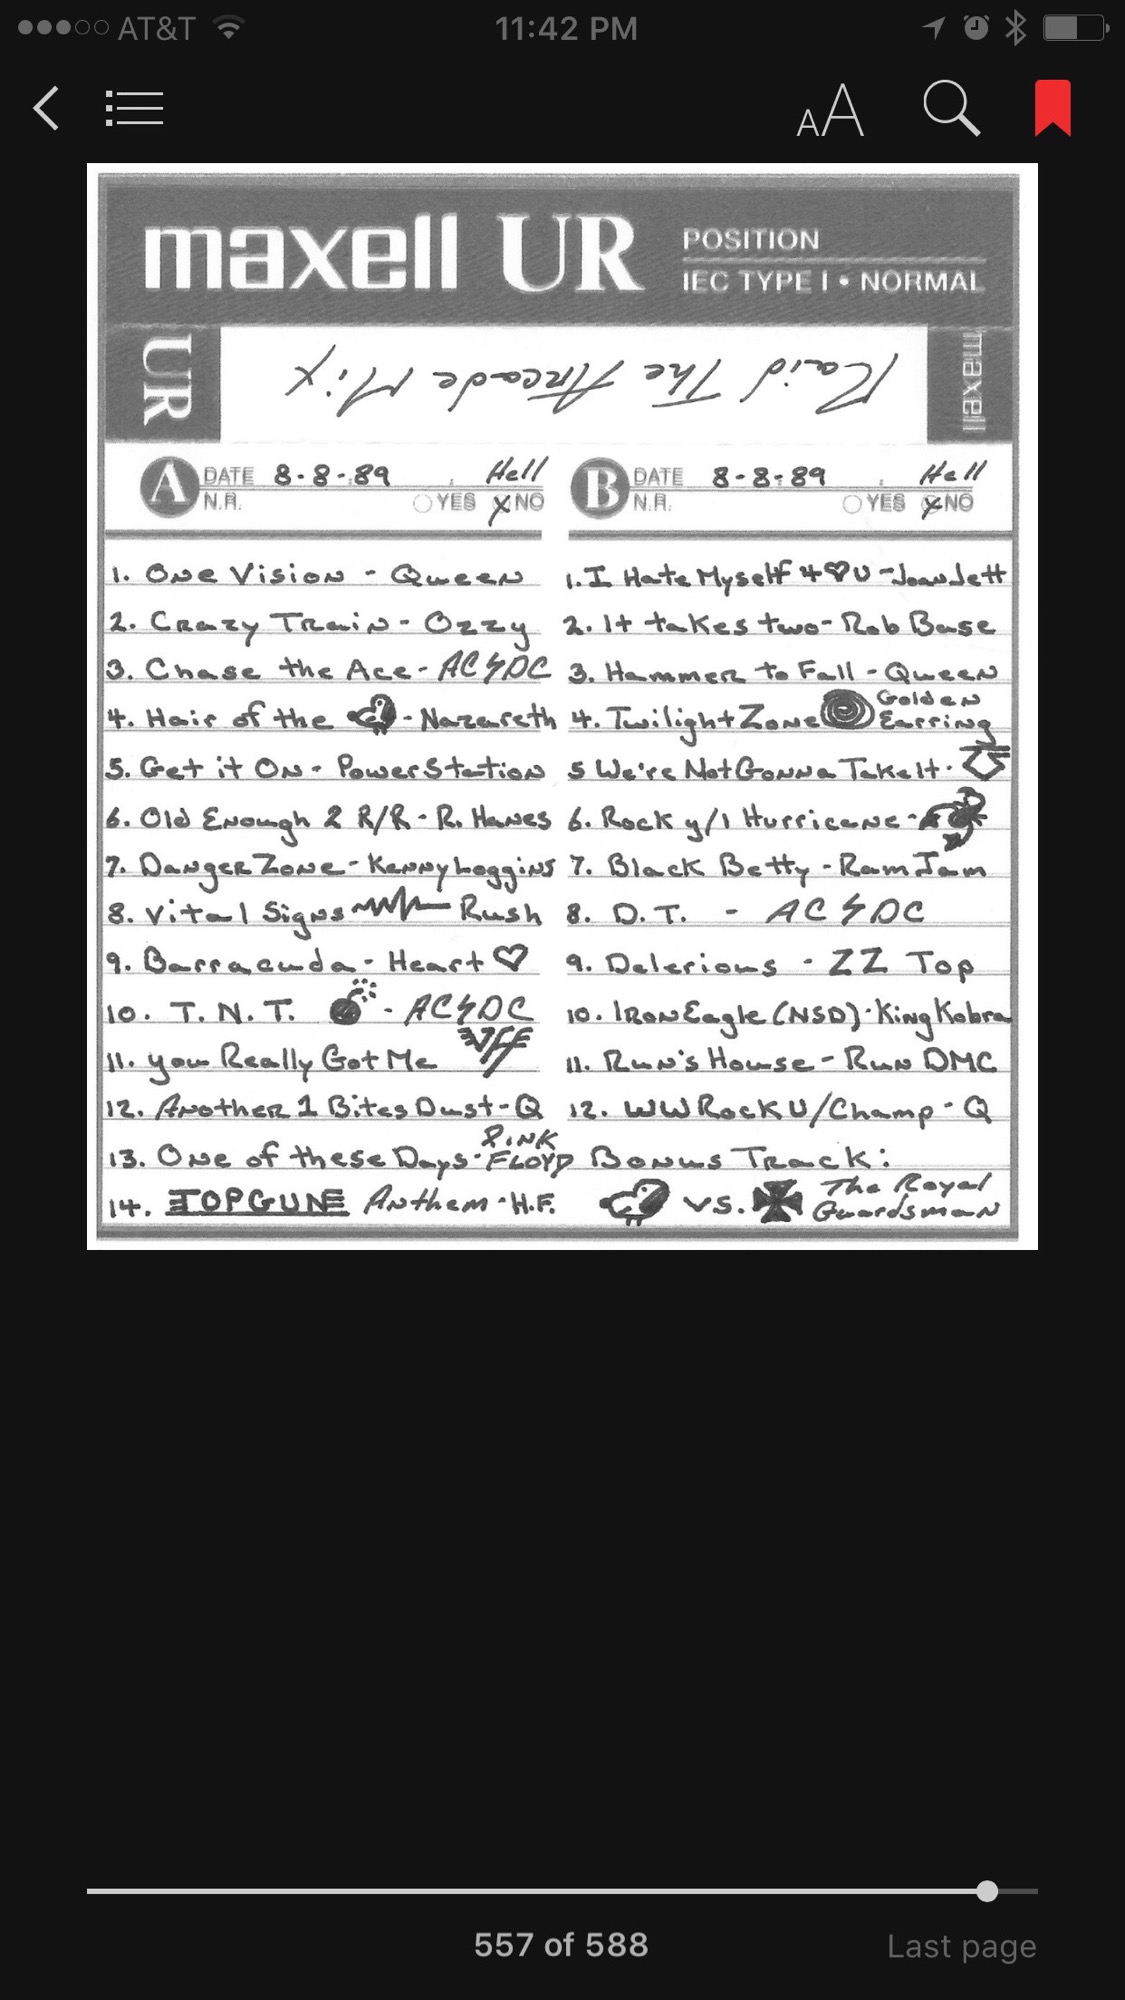 AT&T 11:42 PM
AA
maxell UR POSITION
IEC TYPE I • NORMAL
UR Raid The Arcade Mix maxell
A DATE 8-8-89 Hell
N.R. YES X NO
B DATE 8-8-89 Hell
N.R. YES X NO
1. One Vision - Queen
2. Crazy Train - Ozzy
3. Chase the Ace - AC⚡DC
4. Hair of the - Nazareth
5. Get it On - PowerStation
6. Old Enough 2 R/R - R. Hanes
7. Danger Zone - Kenny Loggins
8. Vital Signs Rush
9. Barracuda - Heart ♡
10. T.N.T. 💣 - AC⚡DC
11. You Really Got Me VH
12. Another 1 Bites Dust - Q
13. One of these Days - PINK FLOYD
14. TOPGUN Anthem - H.F.
1. I Hate Myself 4 ♡ U - Joan Jett
2. It takes two - Rob Base
3. Hammer to Fall - Queen
4. Twilight Zone Golden Earring
5 We're Not Gonna Take It -
6. Rock y/l Hurricane -
7. Black Betty - Ram Jam
8. D.T. - AC⚡DC
9. Delerious - ZZ Top
10. Iron Eagle (NSD) - King Kobra
11. Run's House - Run DMC
12. WW Rock U/Champ - Q
Bonus Track:
vs. The Royal Guardsman
557 of 588
Last page